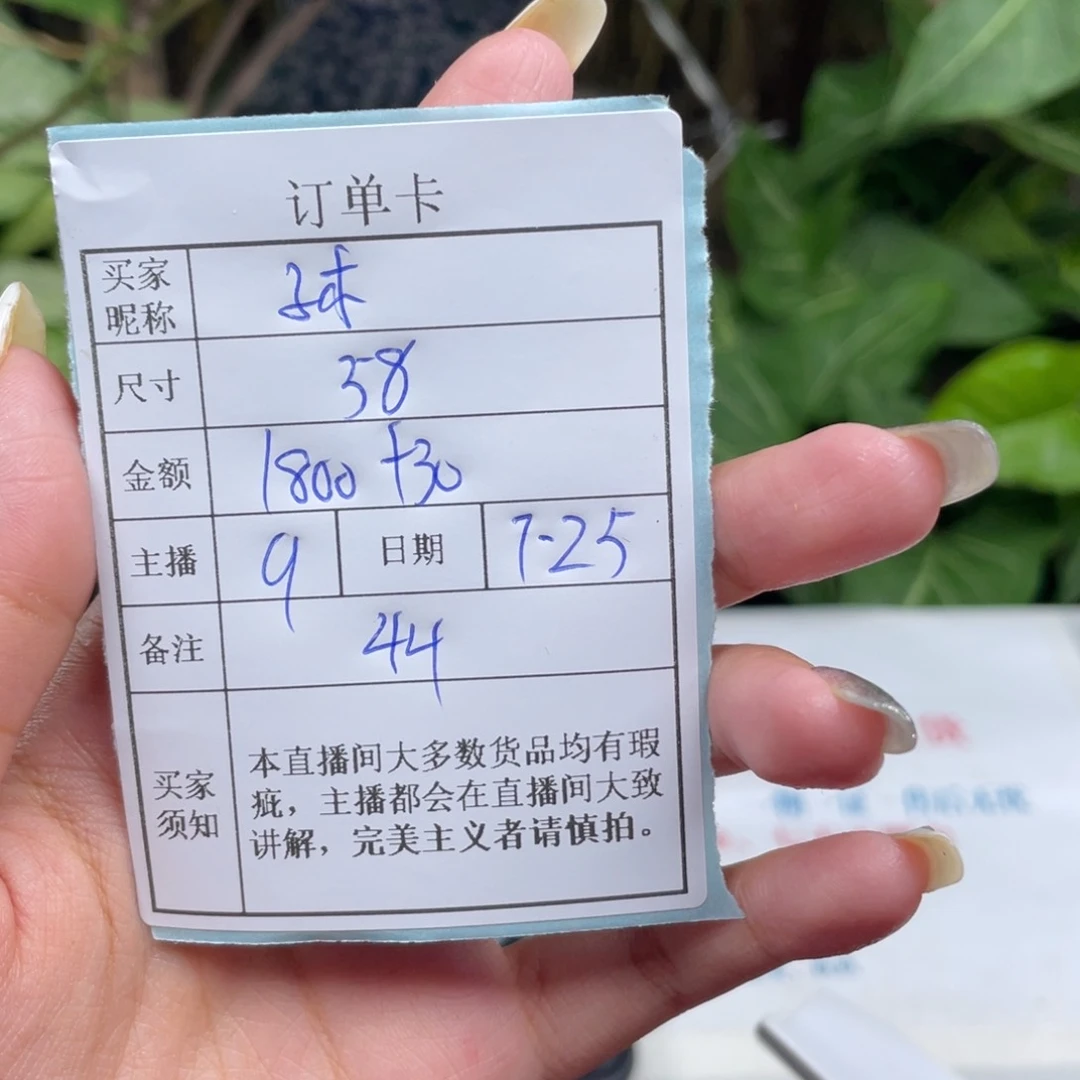 订单卡
买家昵称
尺寸 58
金额 1800 +30
主播 9 日期 7-25
备注 44
买家须知
本直播间大多数货品均有瑕
疵，主播都会在直播间大致
讲解，完美主义者请慎拍。